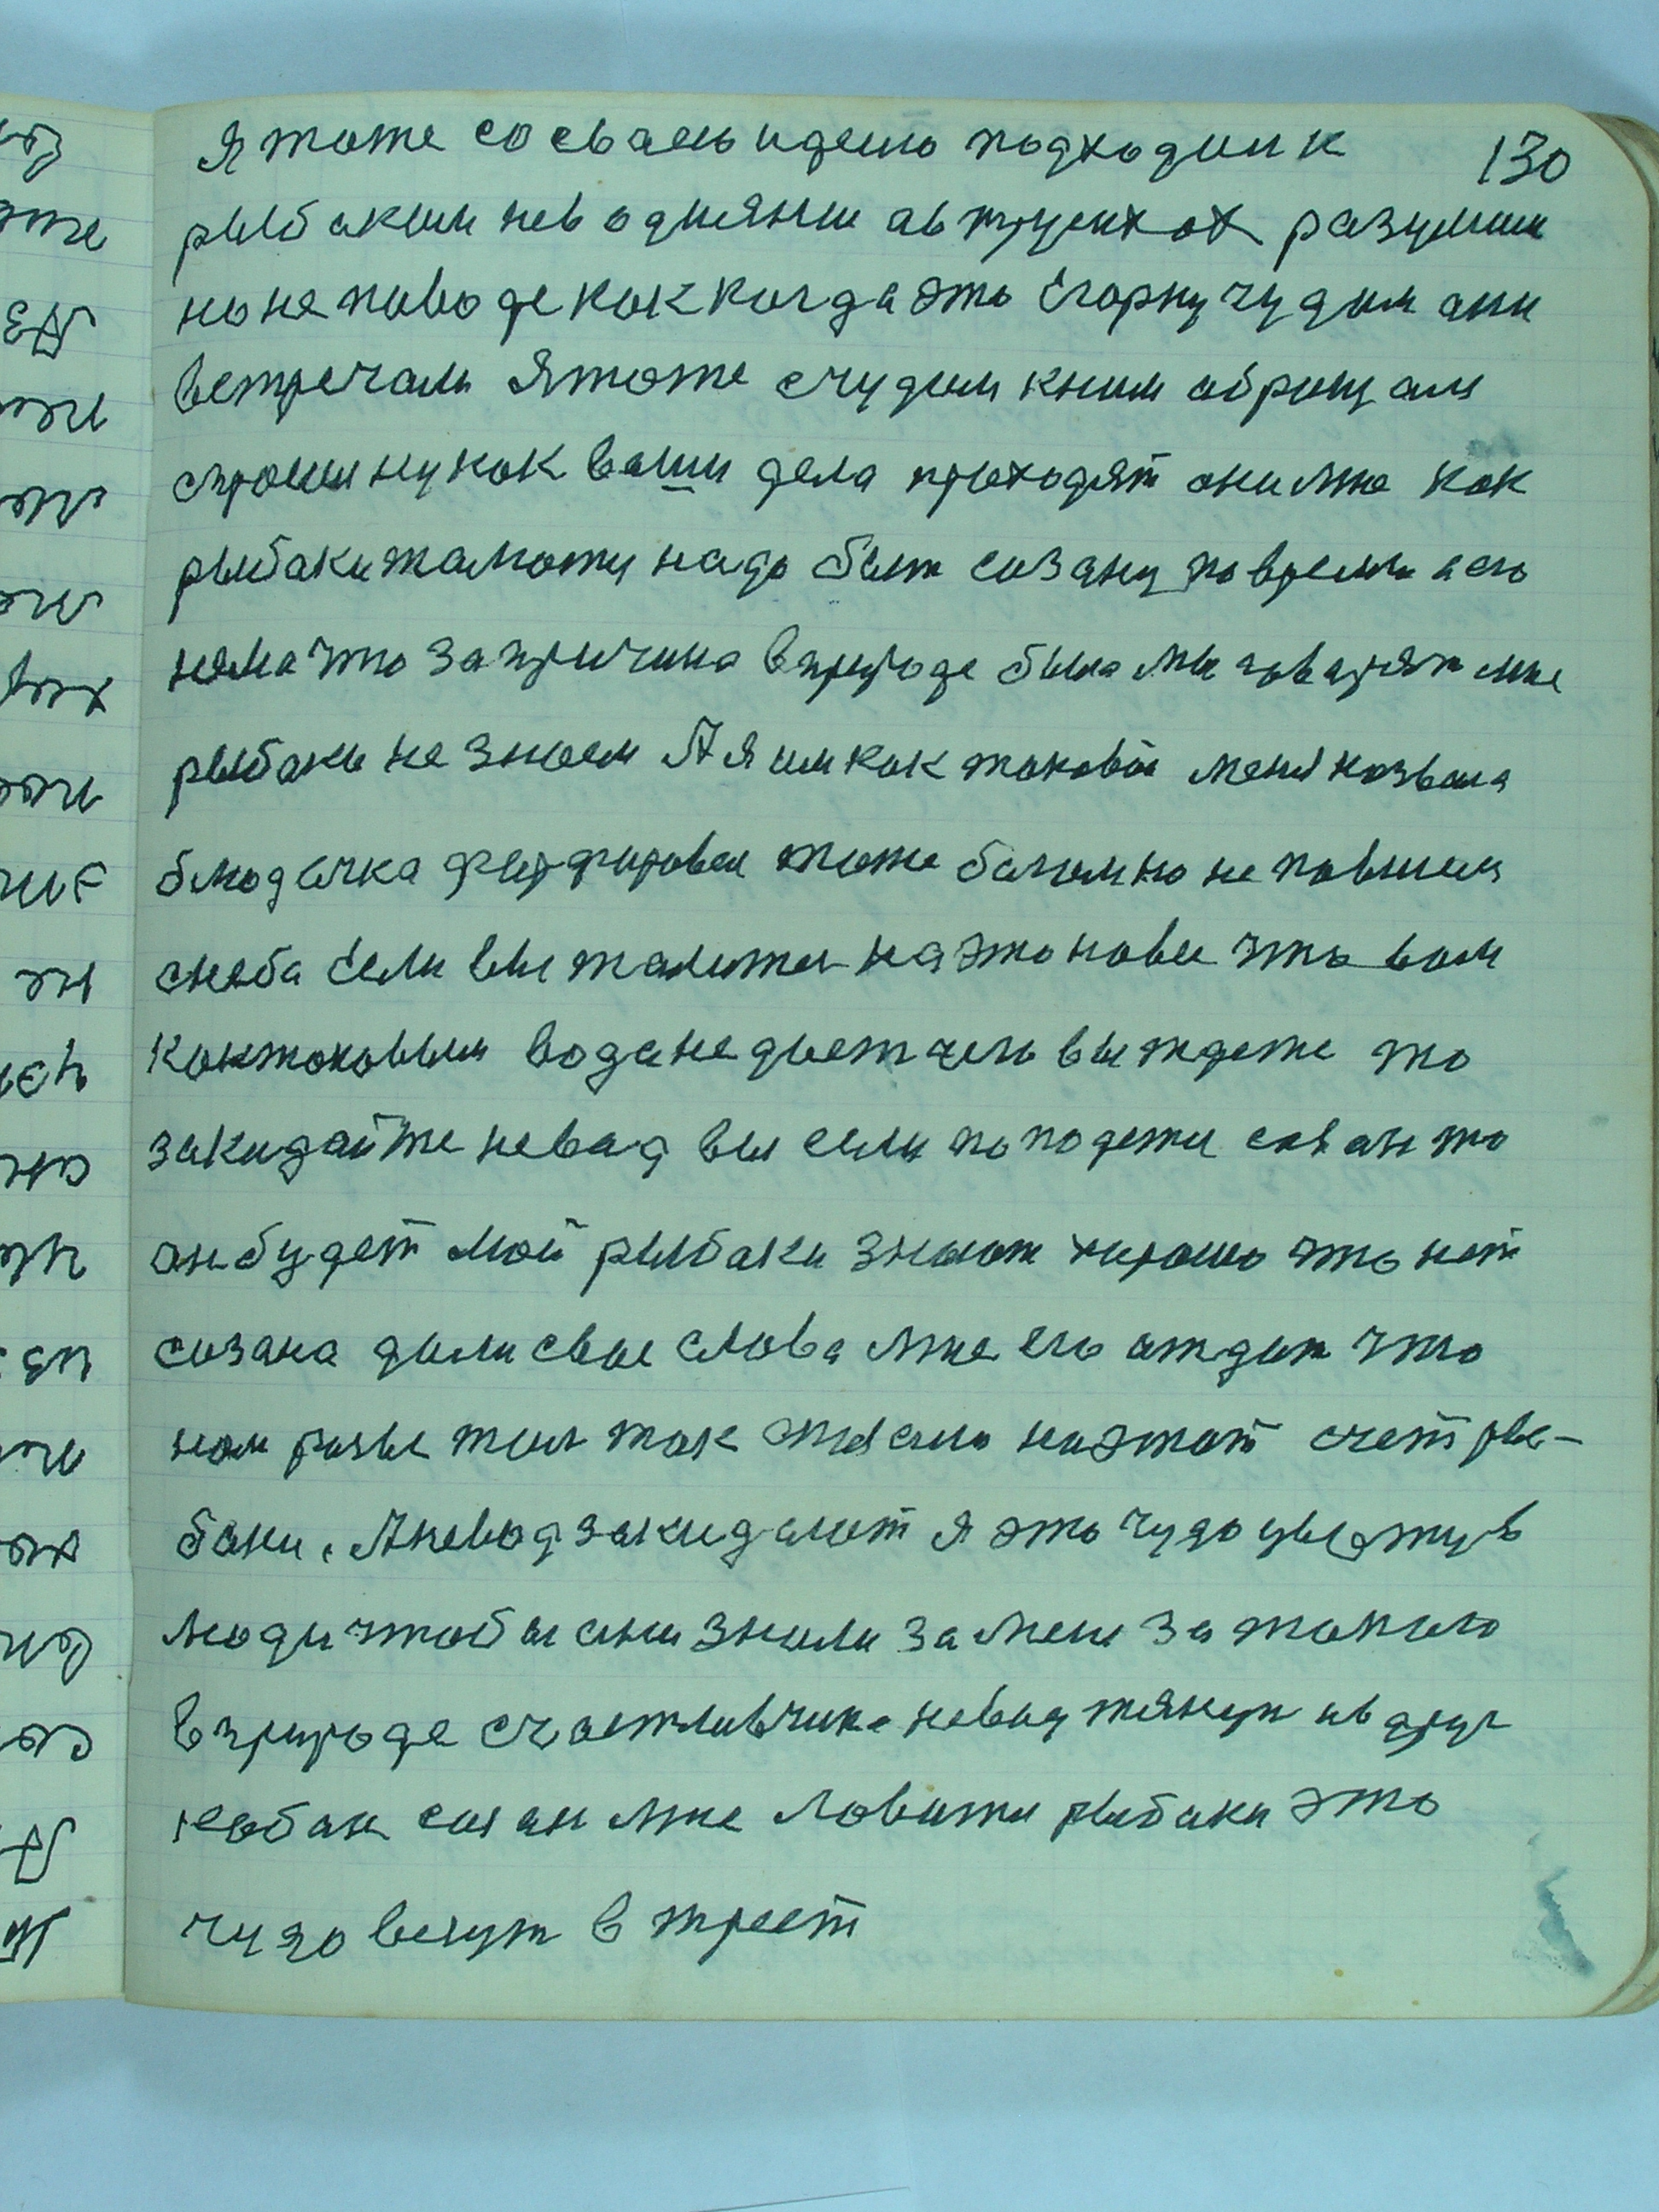 Я тоже со сваею идею подходим к 130
рыбаким неводняными а в трусихах разумим
но не поводе как когда это Егорку чудом они
встречали Я тоже счудом к ним обращаль
спрошу ну как ваши дела проходят они мне как
рыбаки тамоту надо быт сазану по время а его
нема что за причина в природе была мы говарят мне
рыбаки не знаем А я им как таковой меня назвала
блюдечка фарфировая тоже богом но не повшем
с неба Если вы жалитеся на это новое что вам
как токовым вода не дает чего вы ждете то
закидайте невад вы если попадети сазан то
он будет мой рыбаки знают хирошо что нет
сизана дали свое слова мне его атдат что
нам разве жал так писали на этот счет ры-
баки. А невод закидалют я это чудо увежу в
люди чтобы они знали за мене за такого
в природе счастливчика невад тянут и в друг
кабан сизан мне ловити рыбаки это
чудо везут в трест